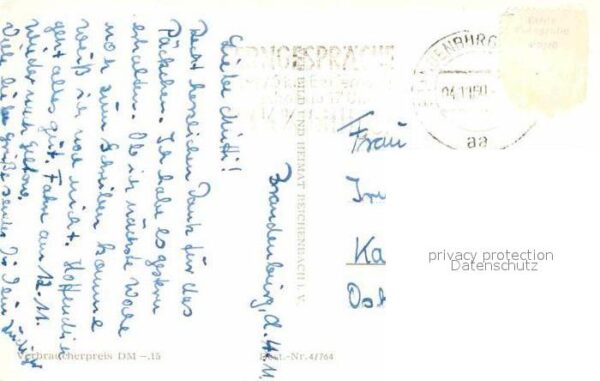 Brandenburg, d. 4.11.
Liebe Mutti!
Recht herzlichen Dank für das
Päckchen. Ich habe es gestern
erhalten. Ob ich nächste Woche
noch zum Schreiben komme
weiß ich noch nicht. Hoffentlich
geht alles gut. Fahre am 12.11.
wieder nach
Viele liebe Grüße sendet Dir Dein
/Frau
Ka
FERNGESPRÄCHE
aa
BILD UND HEIMAT REICHENBACH I. V.
Verbraucherpreis DM -.15
Best.-Nr. 4/764
privacy protection
Datenschutz